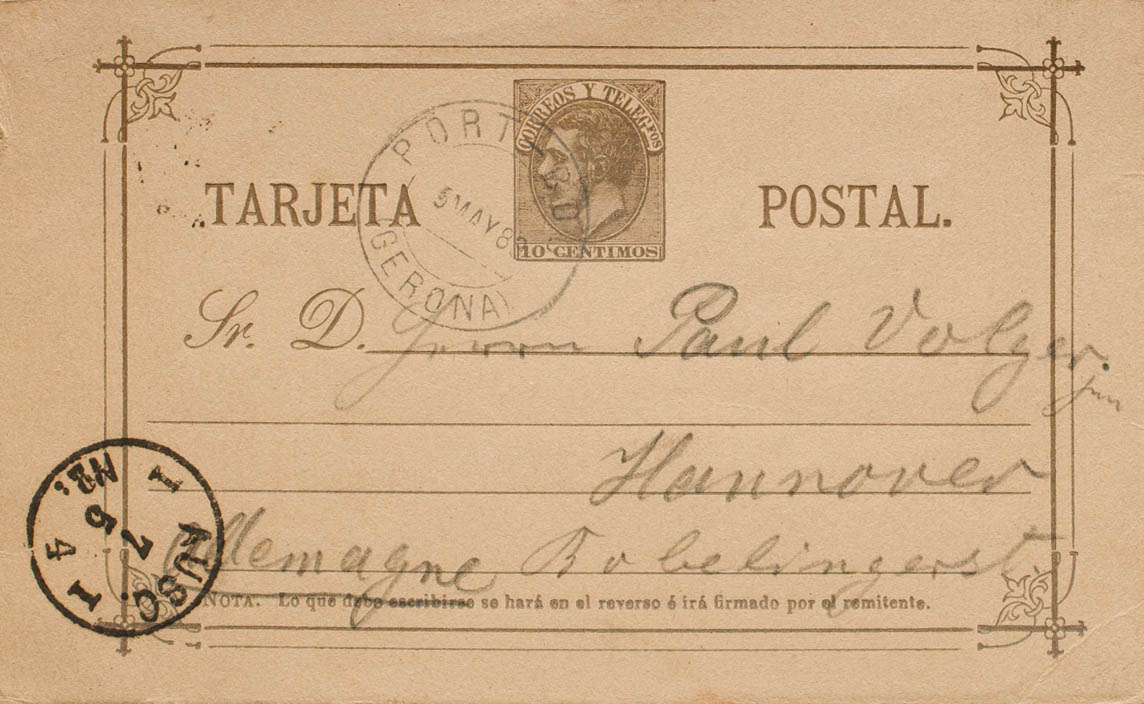 CORREOS Y TELEGFOS
10 CENTIMOS
TARJETA POSTAL.
PORT
5 MAY 8
(GERONA)
Sr. D. Herrn Paul Volger.
jun
Hannover
Allemagne Bobelingerst.
NOTA. Lo que debe escribirse se hará en el reverso é irá firmado por el remitente.
AUSG. I
7
5
4
I